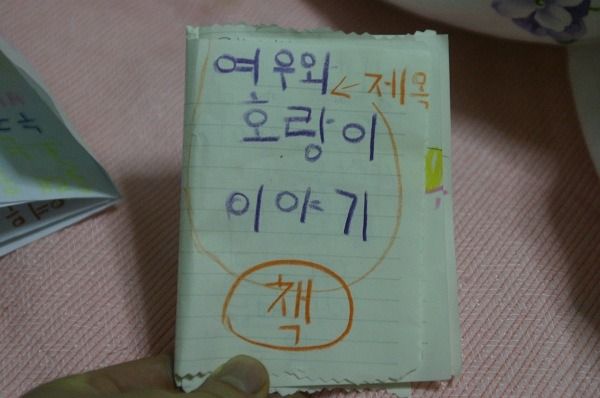 여우와 ← 제목
호랑이
이야기
책